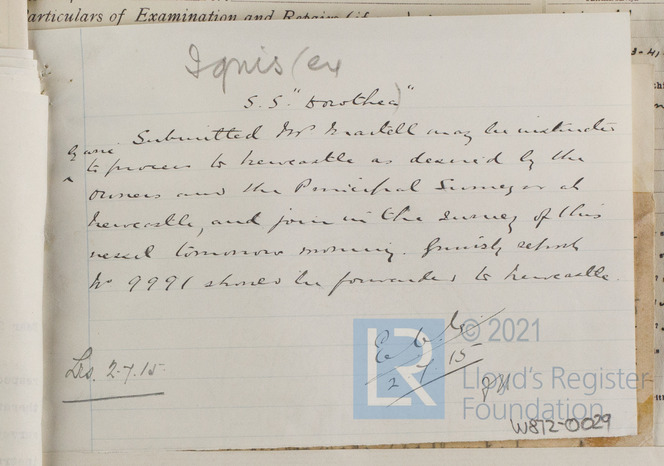 articulars of Examination and Repairs (if
3-41
Ignis (ex
S.S. "Dorothea"
Submitted Mr Martell may be instructed
by wire
to proceed to Newcastle as desired by the
owners and the Principal Surveyor at
Newcastle, and join in the survey of this
vessel tomorrow morning. Grimsby report
No 9991 should be forwarded to Newcastle.
2.7.15
Lrs. 2.7.15.
© 2021
LR
Lloyd's Register
Foundation
W872-0029